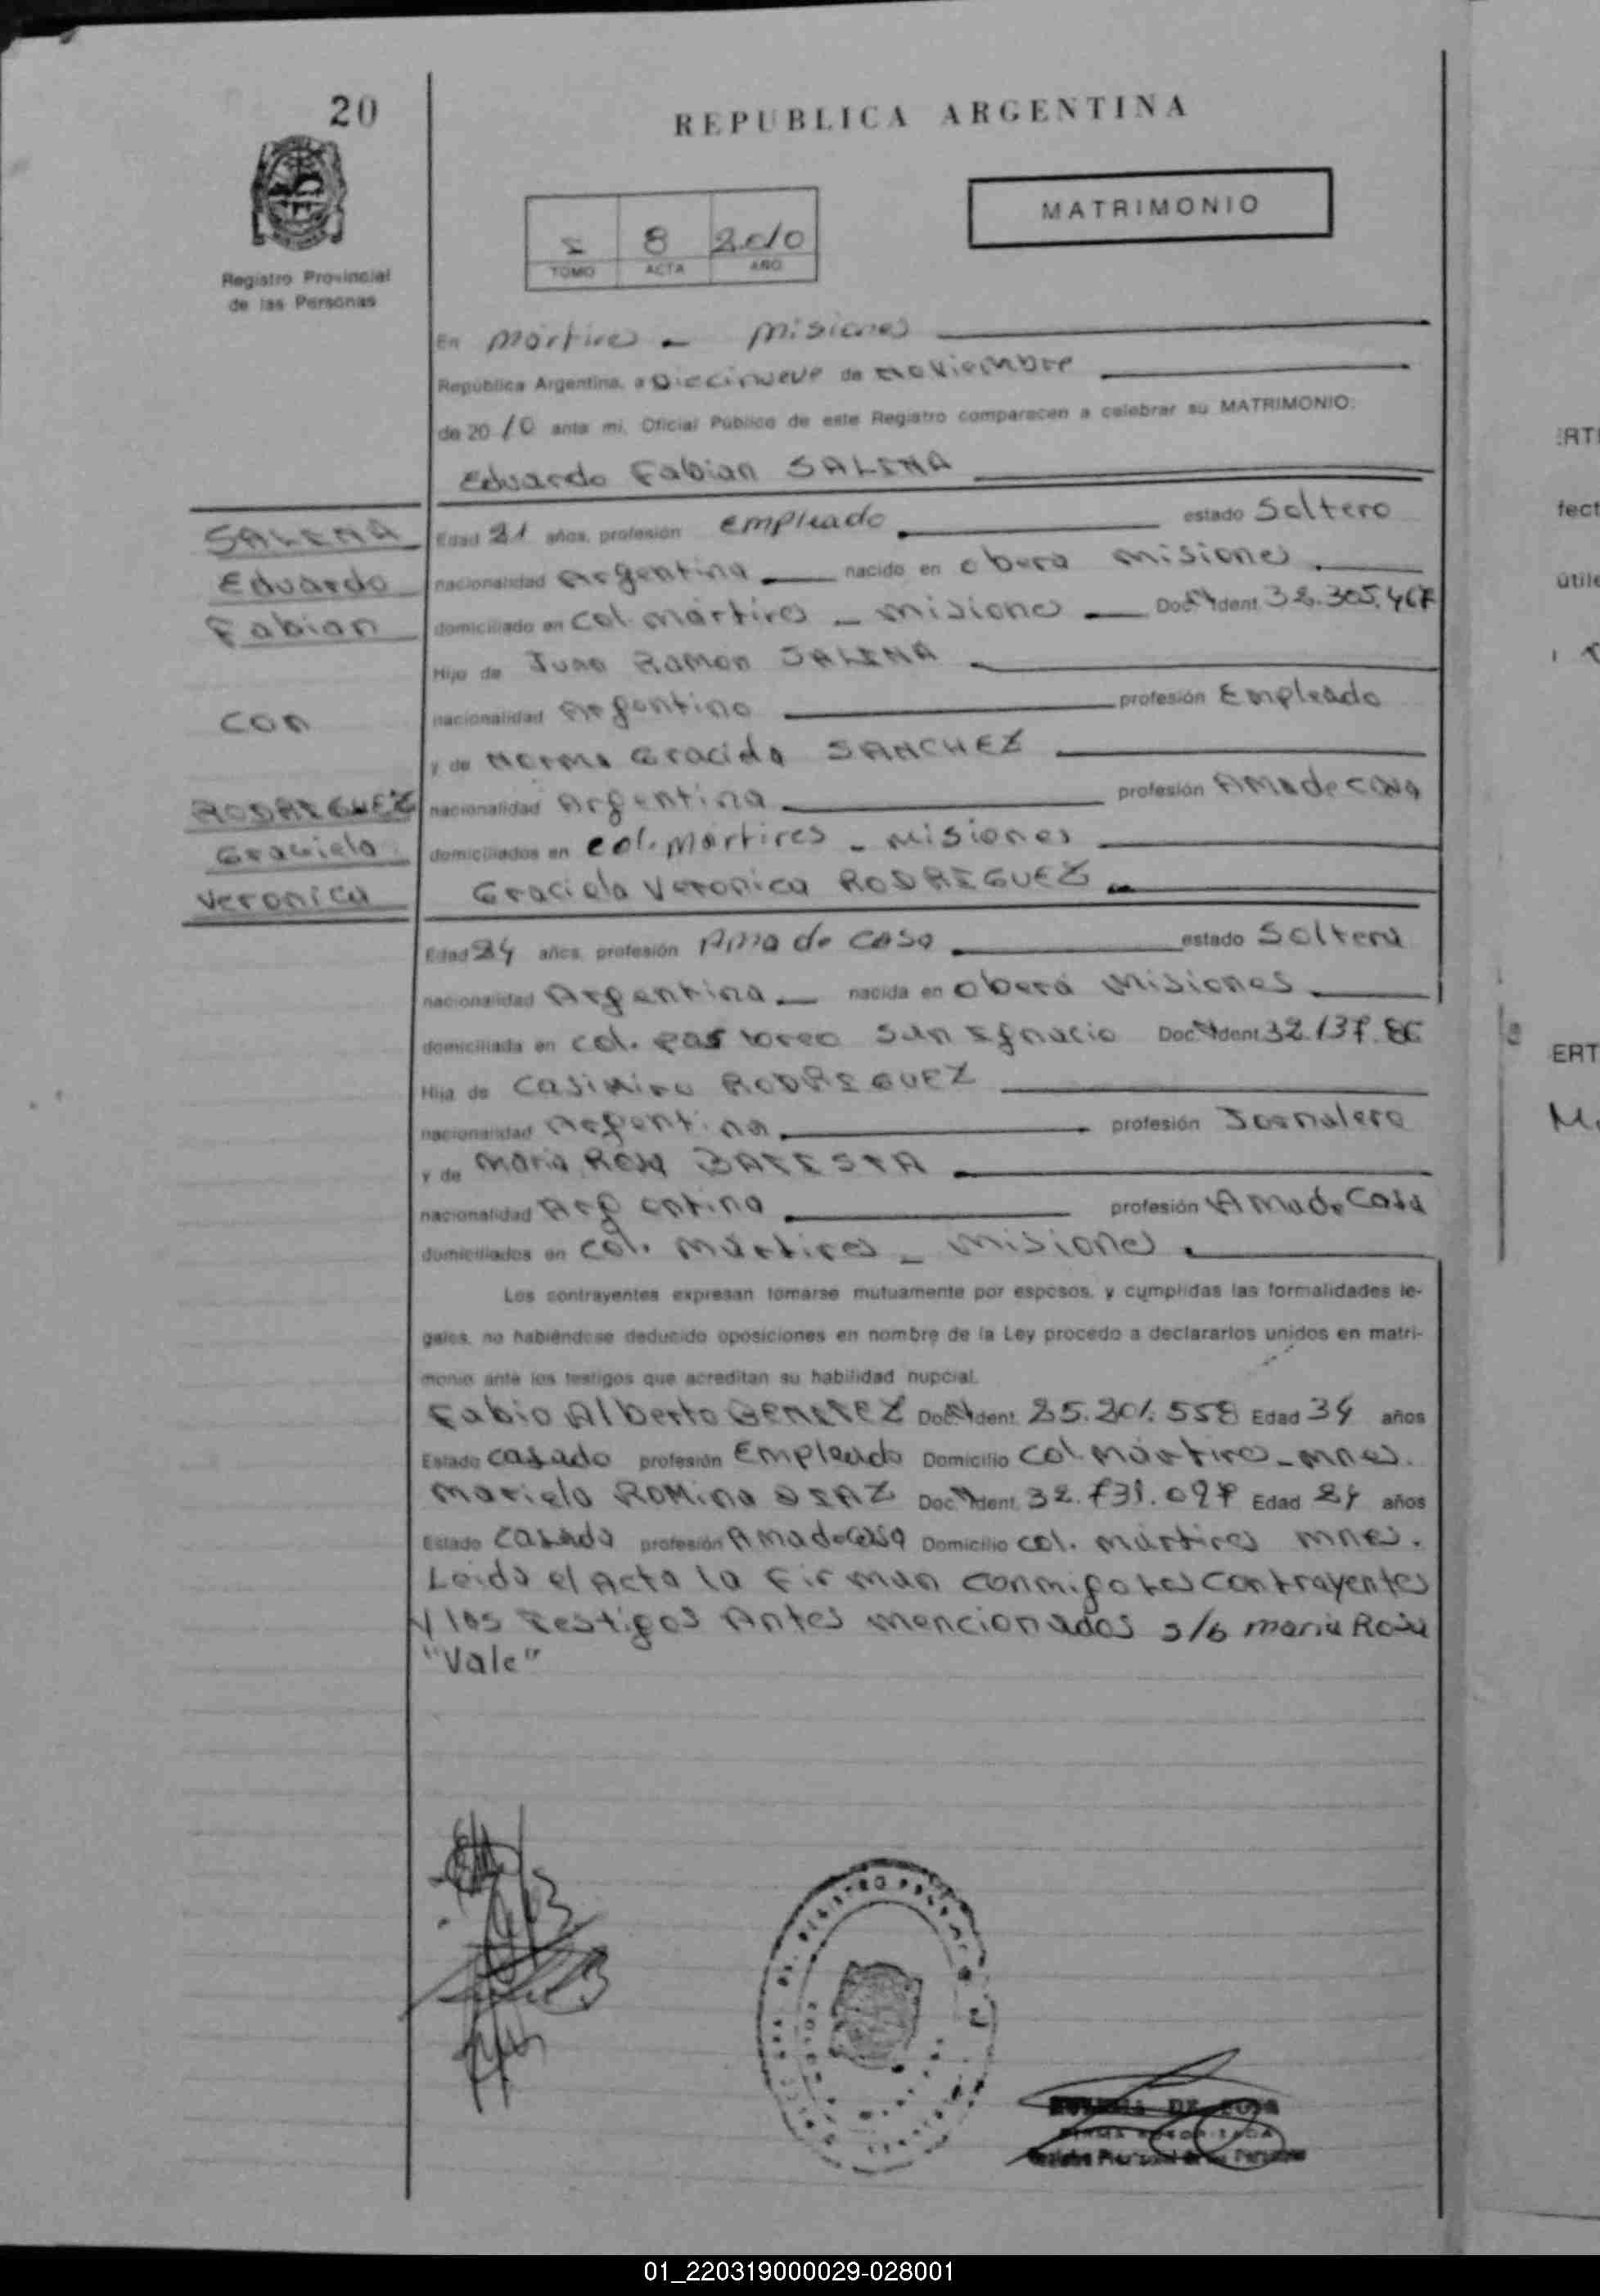 20
REPUBLICA ARGENTINA
MATRIMONIO
I 8 2010
TOMO ACTA AÑO
Registro Provincial
de las Personas
En Mártires - Misiones
República Argentina, a Diecinueve de Noviembre
de 2010 ante mi, Oficial Público de este Registro comparecen a celebrar su MATRIMONIO:
Eduardo Fabian SALINA
SALINA
Eduardo
Fabian
con
RODRIGUEZ
Graciela
Veronica
Edad 21 años, profesión Empleado estado Soltero
nacionalidad Argentina nacido en Oberá Misiones
domiciliado en Col. Mártires - Misiones Doc. Ident.
Hijo de Ramon SALINA
nacionalidad Argentino profesión Empleado
y de Norma Gracida SANCHEZ
nacionalidad Argentina profesión Ama de casa
domiciliados en col. Mártires - Misiones
Graciela Veronica RODRIGUEZ
Edad 24 años, profesión Ama de casa estado Soltera
nacionalidad Argentina nacida en Oberá Misiones
domiciliada en col. Pastoreo San Ignacio Doc. Ident. 32.137.
Hija de Casimiro RODRIGUEZ
nacionalidad Argentina profesión Jornalero
y de Maria Rosa BATISTA
nacionalidad Argentina profesión Ama de Casa
domiciliados en col. Mártires - Misiones
Los contrayentes expresan tomarse mutuamente por esposos, y cumplidas las formalidades le-
gales, no habiéndose deducido oposiciones en nombre de la Ley procedo a declararlos unidos en matri-
monio ante los testigos que acreditan su habilidad nupcial.
Fabio Alberto BENITEZ Doc. Ident. 25.201.558 Edad 34 años
Estado casado profesión Empleado Domicilio Col Mártires - Mnes.
Mariela Romina DIAZ Doc. Ident. 32.731.097 Edad 24 años
Estado casada profesión Ama de casa Domicilio col. Mártires Mnes.
Leida el Acta la Firman conmigo los contrayentes
y los Testigos Antes mencionados s/b Maria Rosa
"Vale"
DE
01_220319000029-028001